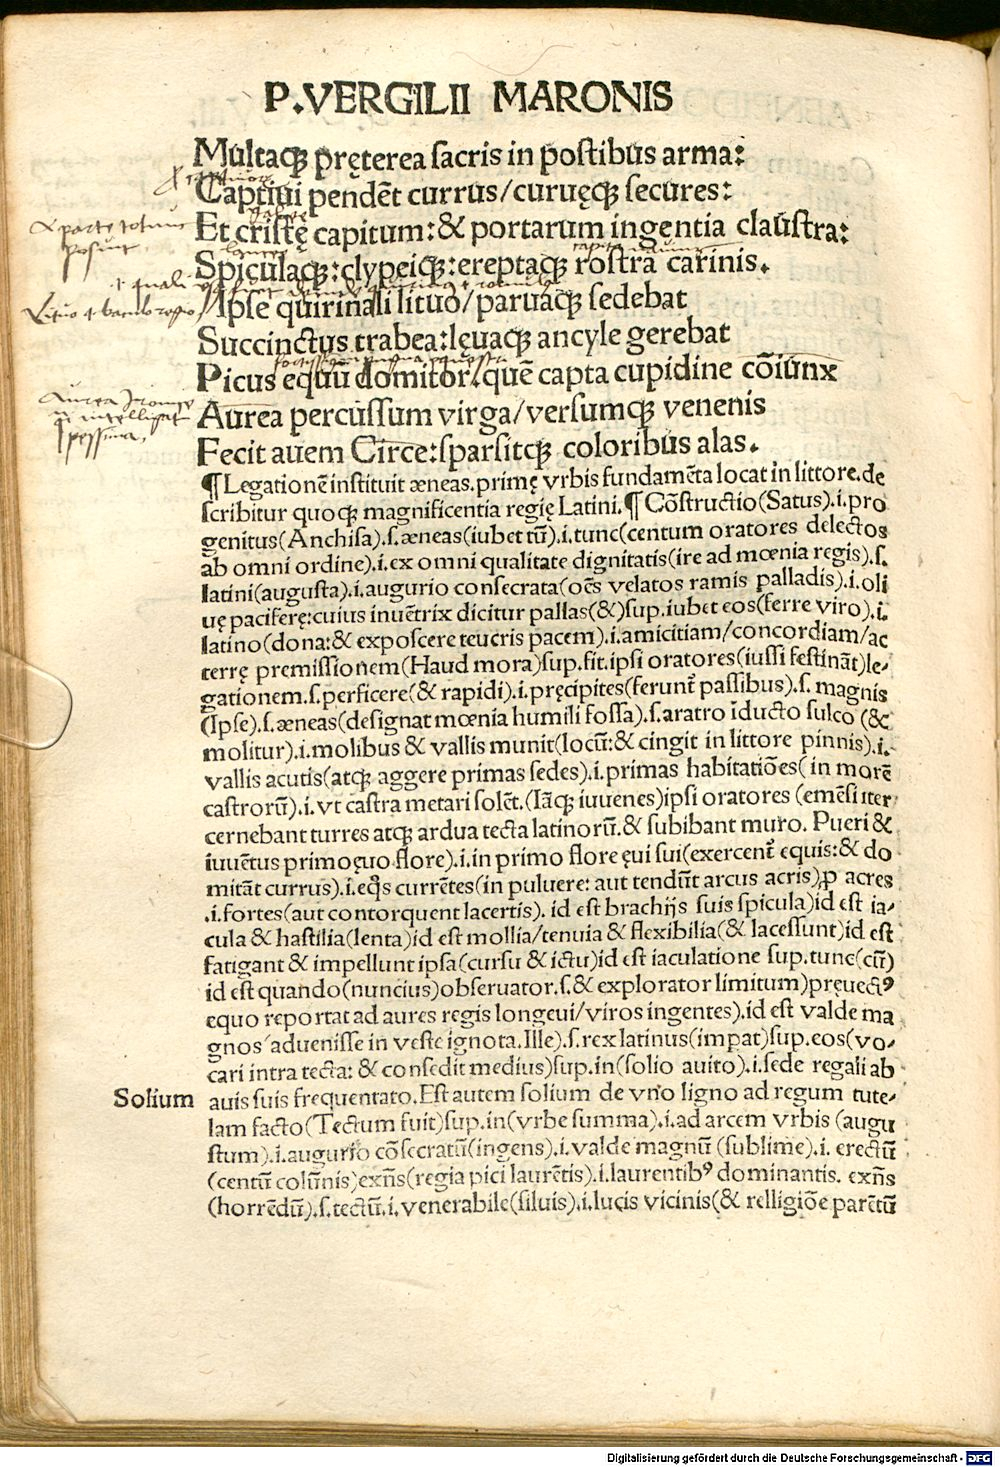 P.VERGILII MARONIS
Multaqꝫ pręterea sacris in postibus arma:
Captiui pendẽt currus/curuęqꝫ secures:
Et cristę capitum:& portarum ingentia claustra:
Spiculaqꝫ:clypeiqꝫ:ereptaqꝫ rostra carinis.
Ipse quirinali lituo/paruaqꝫ sedebat
Succinctus trabea:lęuaqꝫ ancyle gerebat
Picus equũ domitor.quẽ capta cupidine cõiunx
Aurea percussum virga/versumqꝫ venenis
Fecit auem Circe:sparsitqꝫ coloribus alas.
& parte totum
posuit
Lituo .i. baculo regio
Aurea
intelligat
pessima
¶ Legationẽ instituit æneas.primę vrbis fundamẽta locat in littore.de
scribitur quoqꝫ magnificentia regię Latini.¶ Cõstructio(Satus).i.pro
genitus(Anchisa).s.æneas(iubet tũ).i.tunc(centum oratores delectos
ab omni ordine).i.ex omni qualitate dignitatis(ire ad mœnia regis).s.
latini(augusta).i.augurio consecrata(oẽs velatos ramis palladis).i.oli
uę paciferę:cuius inuẽtrix dicitur pallas(&)sup.iubet eos(ferre viro).i.
latino(dona:& exposcere teucris pacem).i.amicitiam/concordiam/ac
terrę premissionem(Haud mora)sup.fit.ipsi oratores(iussi festinãt)le⸗
gationem.s.perficere(& rapidi).i.pręcipites(ferunt᷑ passibus).s.magnis
(Ipse).s.æneas(designat mœnia humili fossa).s.aratro ĩducto sulco (&
molitur).i.molibus & vallis munit(locũ:& cingit in littore pinnis).i.
vallis acutis(atqꝫ aggere primas sedes).i.primas habitatiões(in morẽ
castrorũ).i.vt castra metari solẽt.(Iãqꝫ iuuenes)ipsi oratores (emẽsi iter
cernebant turres atqꝫ ardua tecta latinorũ.& subibant muro. Pueri &
iuuẽtus primoęuo flore).i.in primo flore ęui sui(exercent᷑ equis:& do
mitãt currus).i.eq̃s currẽtes(in puluere: aut tendũt arcus acris)ꝓ acres
.i.fortes(aut contorquent lacertis). id est brachijs suis spicula)id est ia⸗
cula & hastilia(lenta)id est mollia/tenuia & flexibilia(& lacessunt)id est
fatigant & impellunt ipsa(cursu & ictu)id est iaculatione sup.tunc(cũ)
id est quando(nuncius)obseruator.s.& explorator limitum)pręuectꝰ
equo reportat ad aures regis longęui/viros ingentes).id est valde ma
gnos aduenisse in veste ignota.Ille).s.rex latinus(impat)sup.eos(vo⸗
cari intra tecta: & consedit medius)sup.in(solio auito).i.sede regali ab
Solium auis suis frequentato.Est autem solium de vno ligno ad regum tute⸗
lam facto(Tectum fuit)sup.in(vrbe summa).i.ad arcem vrbis (augu
stum).i.augurio cõsecratũ(ingens).i.valde magnũ (sublime).i. erectũ
(centũ colũnis)exñs(regia pici laurẽtis).i.laurentibꝰ dominantis. exñs
(horrẽdũ).s.tectũ.i.venerabile(siluis).i.lucis vicinis(& relligiõe parẽtũ
Digitalisierung gefördert durch die Deutsche Forschungsgemeinschaft - DFG